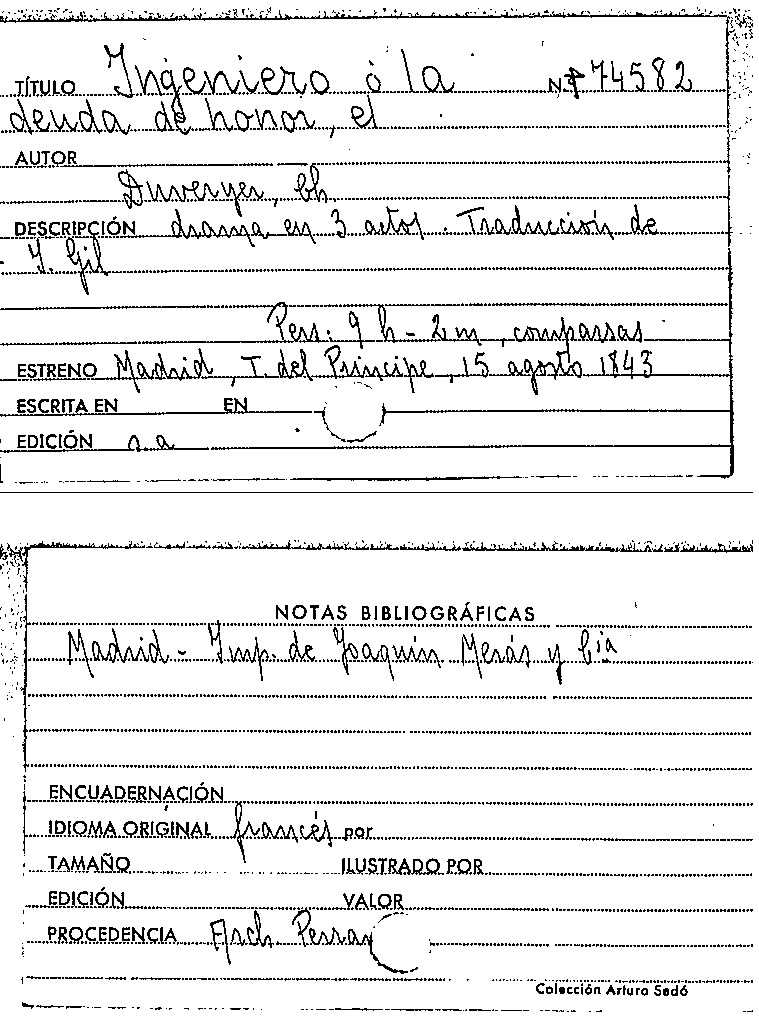 TÍTULO Ingeniero ó la Nº 74582
deuda de honor, el
AUTOR
Duveryer, Ch
DESCRIPCIÓN drama en 3 actos. Traducción de
I. Gil
Pers: 9 h - 2 m, comparsas
ESTRENO Madrid, T. del Príncipe, 15 agosto 1843
ESCRITA EN EN
EDICIÓN s.a
NOTAS BIBLIOGRÁFICAS
Madrid - Imp. de Joaquín Merás y Cía
ENCUADERNACIÓN
IDIOMA ORIGINAL francés por
TAMAÑO ILUSTRADO POR
EDICIÓN VALOR
PROCEDENCIA Arch.
Colección Arturo Sedó